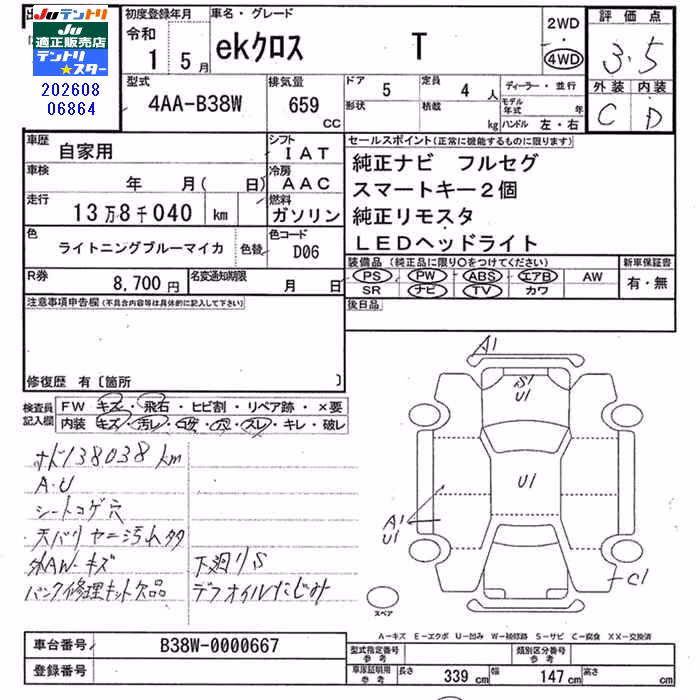 Juテントリ
Ju
適正販売店
テントリ
★スター
202608
06864
初度登録年月
令和
1 5月
車名・グレード
ekクロス T
2WD
・
4WD
評価点
3.5
外装 内装
C D
型式
4AA-B38W
排気量
659
CC
ドア
5
形状
定員
4人
積載
kg
ディーラー・並行
モデル年式 年
ハンドル 左・右
車歴
自家用
シフト
IAT
車検
年 月( 日)
冷房
AAC
走行
13万8千040 km
燃料
ガソリン
色
ライトニングブルーマイカ
色替
色コード
D06
R券
8,700円
名変通知期限
月 日
セールスポイント(正常に機能するものに限ります)
純正ナビ フルセグ
スマートキー2個
純正リモスタ
LEDヘッドライト
装備品 (純正品に限り○をつけてください)
PS PW ABS エアB AW
SR ナビ TV カワ
新車保証書
有・無
後日品
注意事項申告欄(不具合内容等は具体的に記入して下さい)
修復歴 有〔箇所 〕
検査員
記入欄
FW キズ・飛石・ヒビ割・リペア跡・×要
内装 キズ・汚レ・コゲ・穴・スレ・キレ・破レ
オド138038km
A.U
シートコゲ穴
天バリヤニ汚れ多
外AW-キズ
パンク修理キット欠品
下廻りS
デフオイルにじみ
A1
S1
U1
U1
A1
U1
C1
スペア
A-キズ E-エクボ U-凹み W-補修跡 S-サビ C-腐食 XX-交換済
車台番号
B38W-0000667
登録番号
型式指定番号
参考
類別区分番号
参考
車庫証明用
参考
長さ 339 cm
幅 147 cm
高さ cm